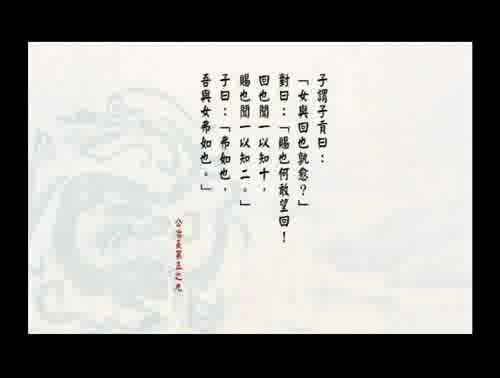 子謂子貢曰：
「女與回也孰愈？」
對曰：「賜也何敢望回！
回也聞一以知十，
賜也聞一以知二。」
子曰：「弗如也，
吾與女弗如也。」
公冶長第五之九